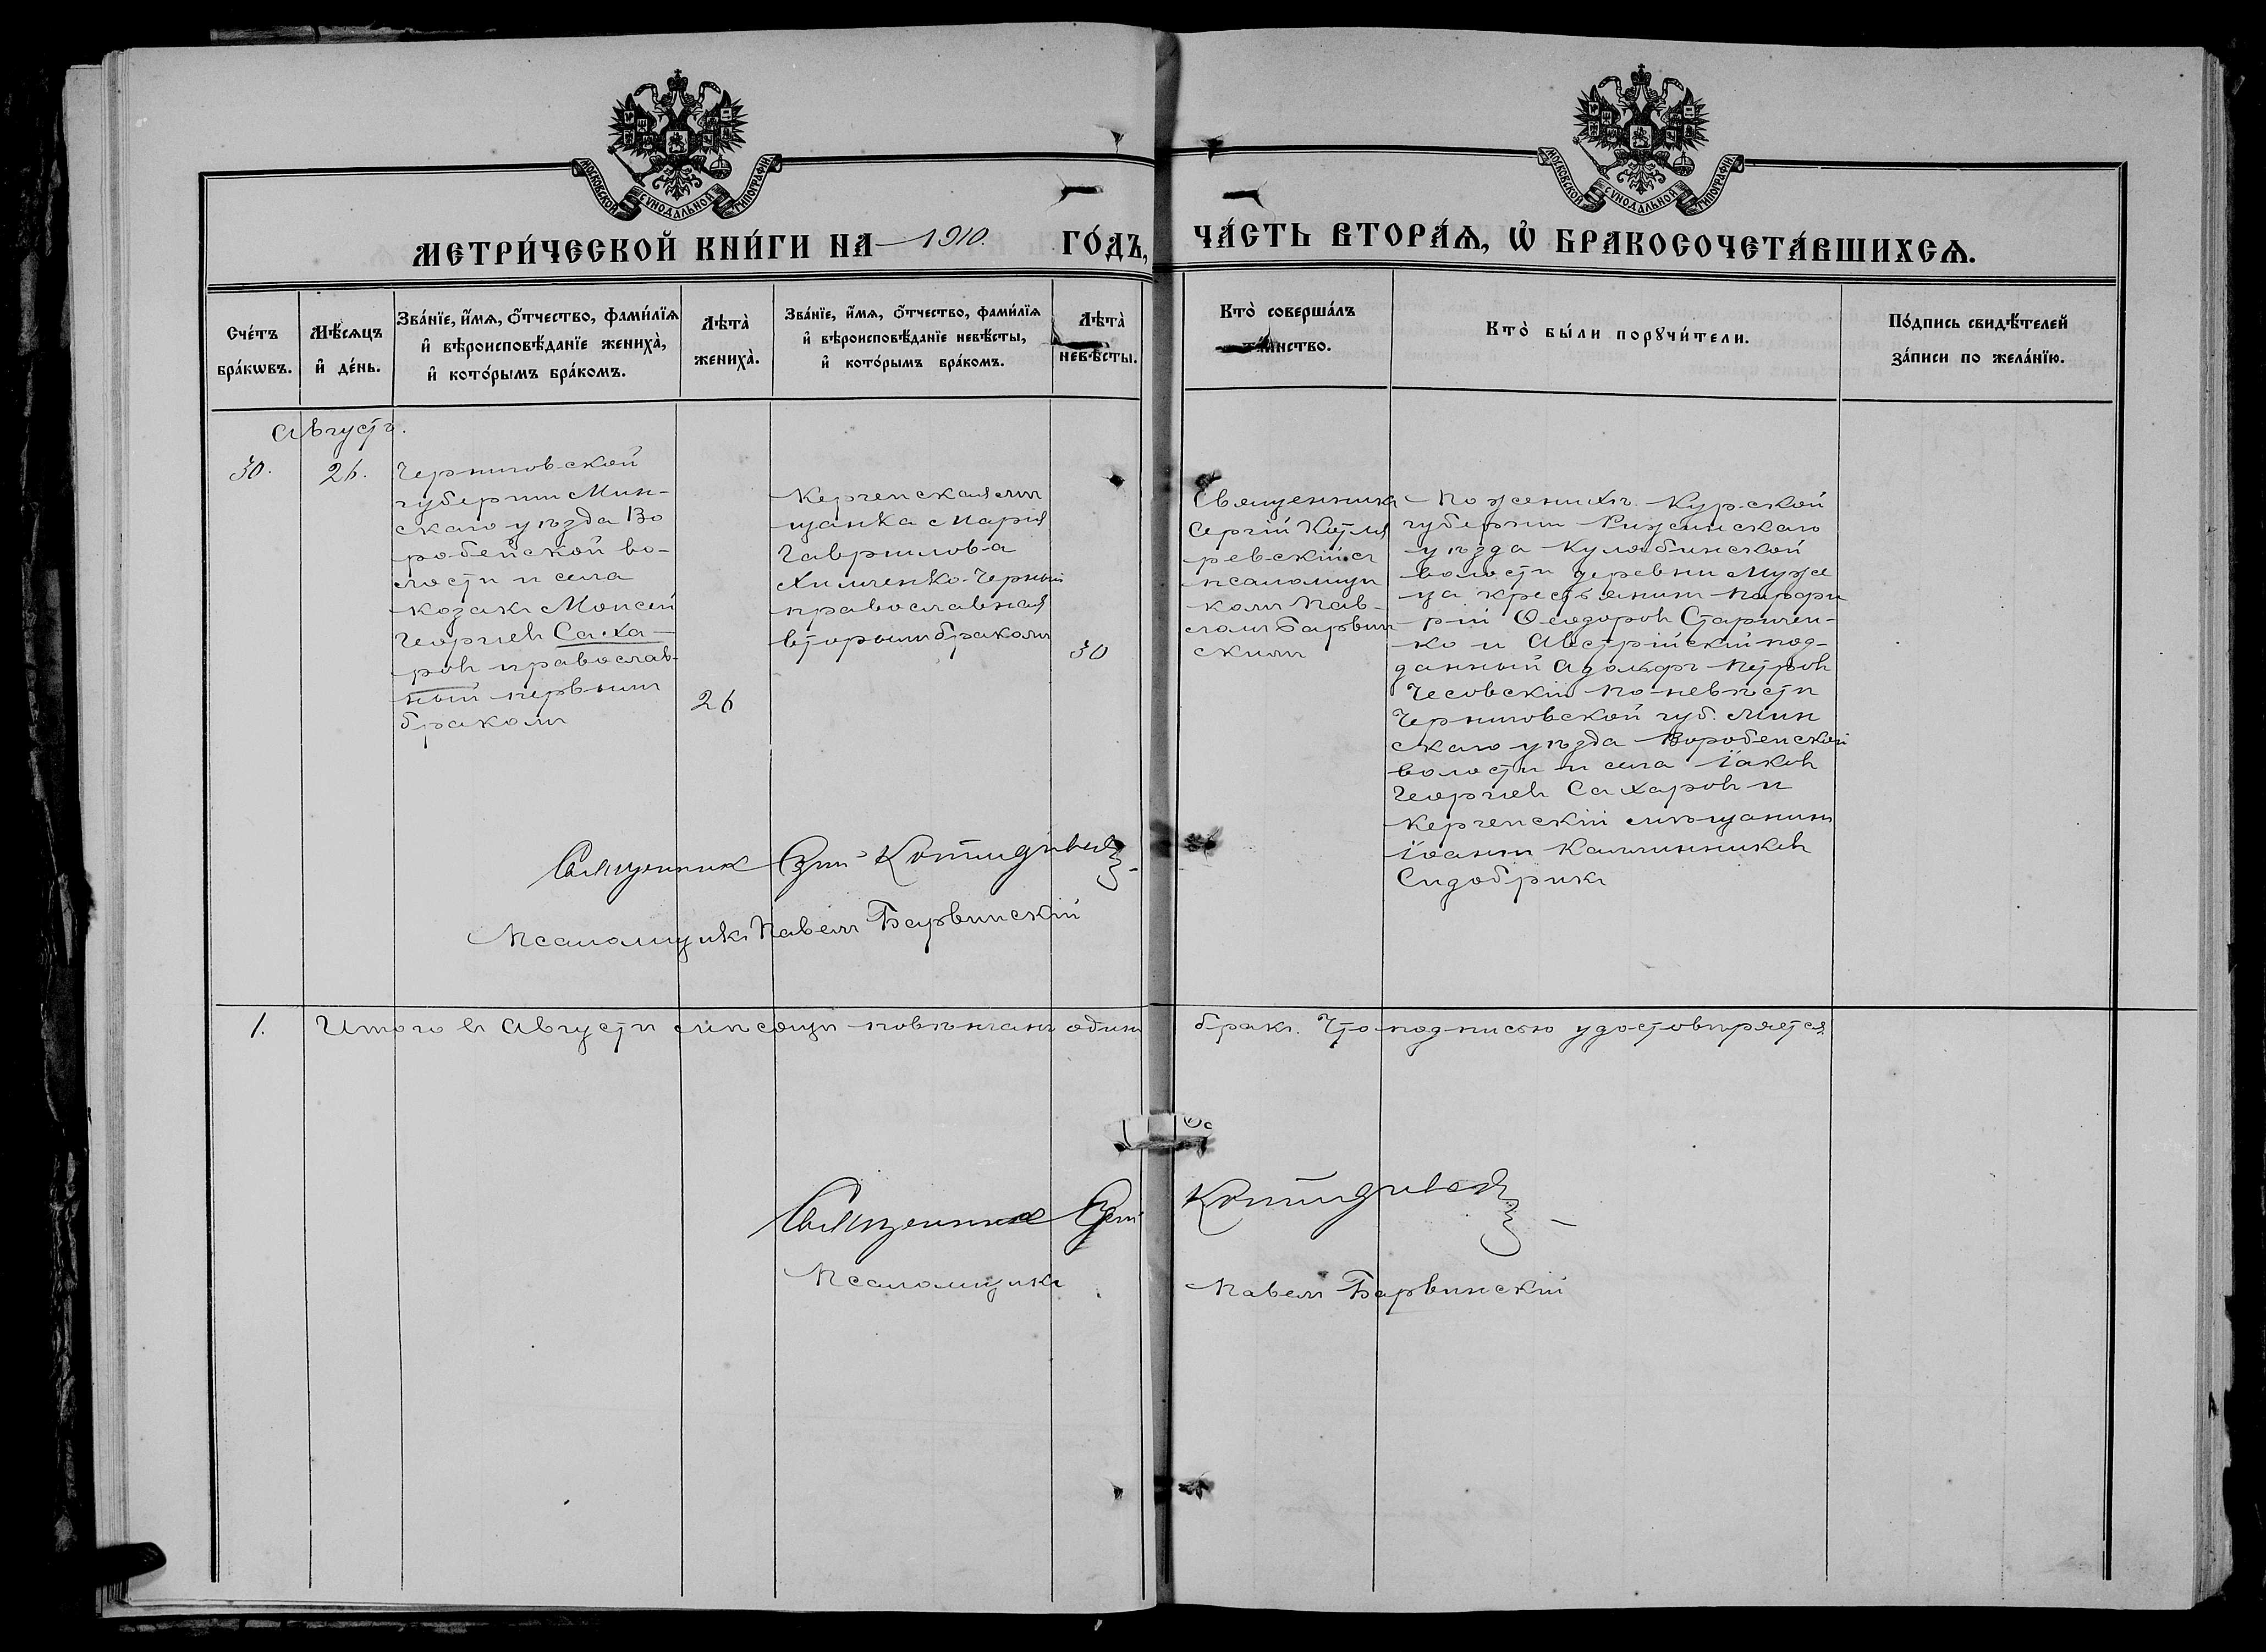 МОСКОВСКОЙ СѴНОДАЛЬНОЙ ТИПОГРАФІИ
МОСКОВСКОЙ СѴНОДАЛЬНОЙ ТИПОГРАФІИ
МЕТРИ́ЧЕСКОЙ КНИ́ГИ НА 1910. ГО́ДЪ,
ЧА́СТЬ ВТОРА́Ѧ, Ѽ БРАКОСОЧЕТА́ВШИХСѦ.
Сче́тъ
бра́кѡвъ.
Мѣ́сѧцъ
и҆ де́нь.
Зва́нїе, и҆́мѧ, о҆́тчество, фами́лїѧ
и҆ вѣроисповѣ́данїе жениха̀,
и҆ кото́рымъ бра́комъ.
Лѣта̀
жениха̀.
Зва́нїе, и҆́мѧ, о҆́тчество, фами́лїѧ
и҆ вѣроисповѣ́данїе невѣ́сты,
и҆ кото́рымъ бра́комъ.
Лѣта̀
невѣ́сты.
Кто̀ соверша́лъ
та́инство.
Кто̀ бы́ли порꙋчи́тели.
По́дпись свидѣ́телей
за́писи по жела́нїю.
Августъ.
30.
26.
Черниговской
губерніи Мин-
скаго уѣзда Во
робейской во-
лости и села
козакъ Моисей
Георгіевъ Саха-
ровъ православ-
ный первымъ
бракомъ
26
Керченская мѣ
щанка Марія
Гавріилова
Химченко-Черный
православная
вторымъ бракомъ
30
Священникъ
Сергій Котля
ревскій съ
псаломщи
комъ Пав-
ломъ Барвин
скимъ
По женихѣ: Курской
губерніи
уѣзда
волости деревни
ца крестьянинъ Порфи
рій Ѳеодоровъ Старичен-
ко и Австрійскій под-
данный Адольфъ Петровъ
Чесовскій по невѣстѣ
Черниговской губ. Мин
скаго уѣзда Воробейской
волости и села Іаковъ
Георгіевъ Сахаровъ и
Керченскій мѣщанинъ
Іоаннъ Каллинниковъ
Сидобрикъ
Священник
Псаломщикъ Павелъ Барвинскій
1. Итого въ Августѣ мѣсяцѣ повѣнчанъ одинъ бракъ. Что подписью удостовѣряется.
Священник
Псаломщикъ Павелъ Барвинскій